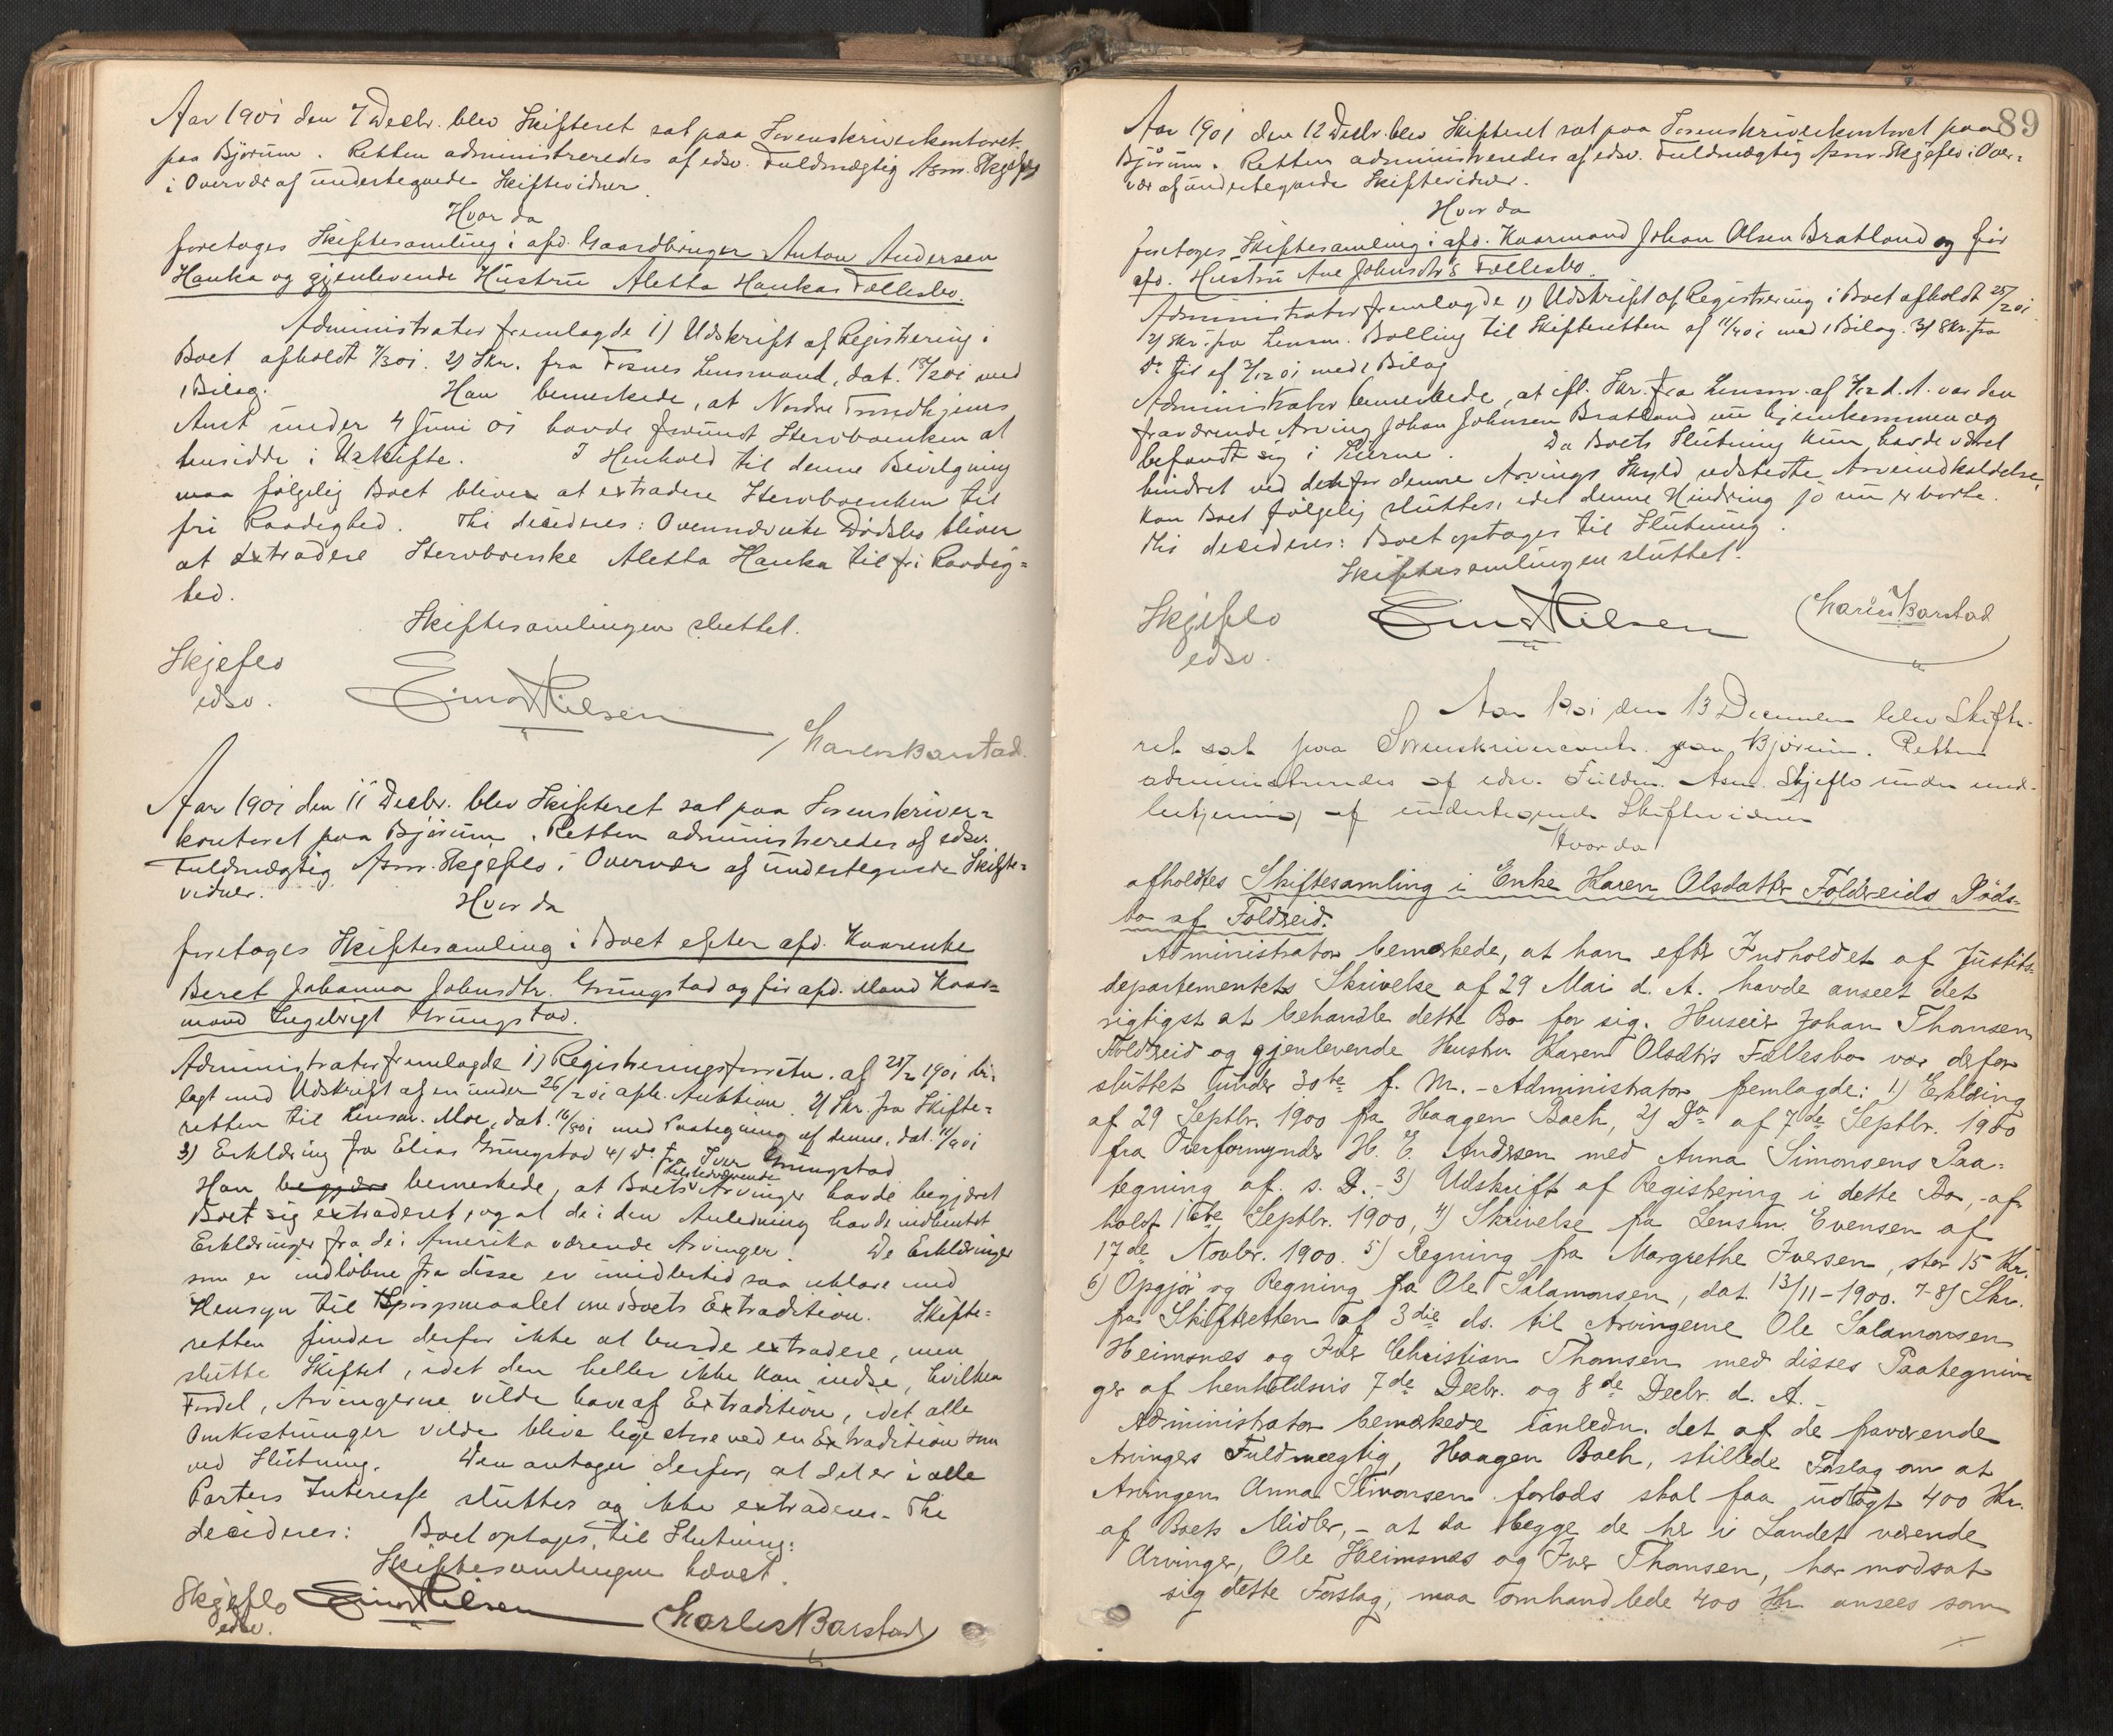 Aar 1901 den 7 Decbr. blev Skifteret sat paa Sorenskriverkontoret
paa Bjørum. Retten administreredes af edsv. Fuldmægtig Asm. Skjeflo
i Overvær af undertegnede Skiftevidner.
Hvor da
foretages Skiftesamling i afd. Gaardbruger Anton Andersen
Hanka og gjenlevende Hustru Aletta Hankas Fællesbo.
Administrator fremlagde 1) Udskrift af Registrering i
Boet afholdt 7/3 01. 2) Skr. fra Fosnes Lensmand, dat. 18/2 01 med
1 Bilag. Han bemerkede, at Nordre Trondhjems
Amt under 4 Juni 01 havde forundt Stervboenken at
hensidde i Uskifte. I Henhold til denne Bevilgning
maa følgelig Boet bliver at extradere Stervboenken til
fri Raadighed. Thi decideres: Ovennævnte Dødsbo bliver
at extradere Stervboenke Aletta Hanka til fri Raadig=
hed.
Skiftesamlingen sluttet.
Skjeflo
edsv.
Einar Nilsen
Charles Barstad.
Aar 1901 den 11 Decbr. blev Skifteret sat paa Sorenskriver=
kontoret paa Bjørum. Retten administreredes af edsv.
Fuldmægtig Asm. Skjeflo i Overvær af undertegnede Skifte=
vidner.
Hvor da
foretages Skiftesamling i Boet efter afd. Kaarenke
Beret Johanna Johnsdtr. Grungstad og før afd. Mand Kaar=
mand Ingebrigt Grungstad.
Administrator fremlagde 1) Registreringsforretn. af 25/2 1901 bi=
lagt med Udskrift af en under 26/2 01 afh. Auktion. 2) Skr. fra Skifte=
retten til Lensm. Moe, dat. 16/8 01 med Paategning af denne, dat. 11/9 01
3) Erklæring fra Elias Grungstad 4) Do fra Iver Grungstad
Han begjær bemerkede, at Boets tilstedeværende Arvinger havde begjæret
Boet sig extraderet, og at de i den Anledning havde indhentet
Erklæringer fra de i Amerika værende Arvinger. De Erklæringer
som er indløbne fra disse er imidlertid saa uklare med
Hensyn til Spørgsmaalet om Boets Extradition. Skifte=
retten finder derfor ikke at burde extradere, men
slutte Skiftet, idet den heller ikke kan indse, hvilken
Fordel, Arvingerne vilde have af Extradition, idet alle
Omkostninger vilde blive lige store ved en Extradition som
ved Slutning. Den antager derfor, at det er i alle
Parters Interesse sluttes og ikke extraderes. Thi
decideres: Boet optages til Slutning:
Skiftesamlingen hævet.
Skjeflo
edsv.
Einar Nilsen
Charles Barstad
89
Aar 1901 den 12 Decbr. blev Skifteret sat paa Sorenskriverkontoret paa
Bjørum. Retten administreredes af edsv. Fuldmægtig Asm. Skjeflo i Over=
vær af undertegnede Skiftevidner.
Hvor da
foretages Skiftesamling i afd. Kaarmand Johan Olsen Bratland og før
afd. Hustru Ane Johnsdtr's Fællesbo.
Administrator fremlagde 1) Udskrift af Registrering i Boet afholdt 25/2 01.
2) Skr. fra Lensm. Bolling til Skifteretten af 11/4 01 med 1 Bilag. 3) Skr. fra
Do til af 3/12 01 med 1 Bilag
Administrator bemerkede, at ifl. Skr. fra Lensm. af 3/12 d. A. var den
fraværende Arving Johan Johnsen Bratland nu hjemkommen og
befandt sig i Live. Da Boets Slutning kun havde været
hindret ved det for denne Arvings Skyld udstedte Arveindkaldelse,
kan Boet følgelig sluttes, idet denne Hindring jo nu er borte.
Thi decideres: Boet optages til Slutning.
Skiftesamlingen sluttet.
Skjeflo
edsv.
Einar Nilsen
Charles Barstad
Aar 1901 den 13 December blev Skifte-
ret sat paa Sorenskrivercontr. paa Bjørum. Retten
administreredes af edsv. Fuldm. Asm. Skjeflo under med-
betjening af undertegnede Skiftevidner
Hvor da
afholdtes Skiftesamling i Enke Karen Olsdatter Foldreids Døds=
bo af Foldreid.
Administrator bemærkede, at han efter Indholdet af Justits=
departementets Skrivelse af 29 Mai d. A. havde anseet det
rigtigst at behandle dette Bo for sig. Huseier Johan Thomsen
Foldreid og gjenlevende Hustru Karen Olsdtr's Fællesbo var derfor
sluttet under 30te f. M. - Administrator fremlagde: 1) Erklæring
af 29 Septbr. 1900 fra Haagen Bach, 2) Do af 7de Septbr. 1900
fra Overformynder H. E. Andersen med Anna Simonsens Paa=
tegning af s. D. - 3) Udskrift af Registrering i dette Bo, - af=
holdt 1ste Septbr. 1900, 4) Skrivelse fra Lensm. Evensen af
17de Novbr. 1900. 5) Regning fra Margrethe Iversen, stor 15 Kr.
6) Opgjør og Regning fra Ole Salamonsen, dat. 13/11-1900. 7-8) Skr.
fra Skifteretten af 3die ds. til Arvingerne Ole Salamonsen
Heimsnæs og Iver Christian Thomsen med disses Paategnin=
ger af henholdsvis 7de Decbr. og 8de Decbr. d. A. -
Administrator bemærkede ianledn. det af de fraværende
Arvinges Fuldmægtig, Haagen Bach, stillede Forslag om at
Arvingen Anna Simonsen forlods skal faa udlagt 400 Kr.
af Boets Midler, - at da begge de her i Landet værende
Arvinger, Ole Heimsnæs og Iver Thomsen, har modsat
sig dette Forslag, maa omhandlede 400 Kr ansees som